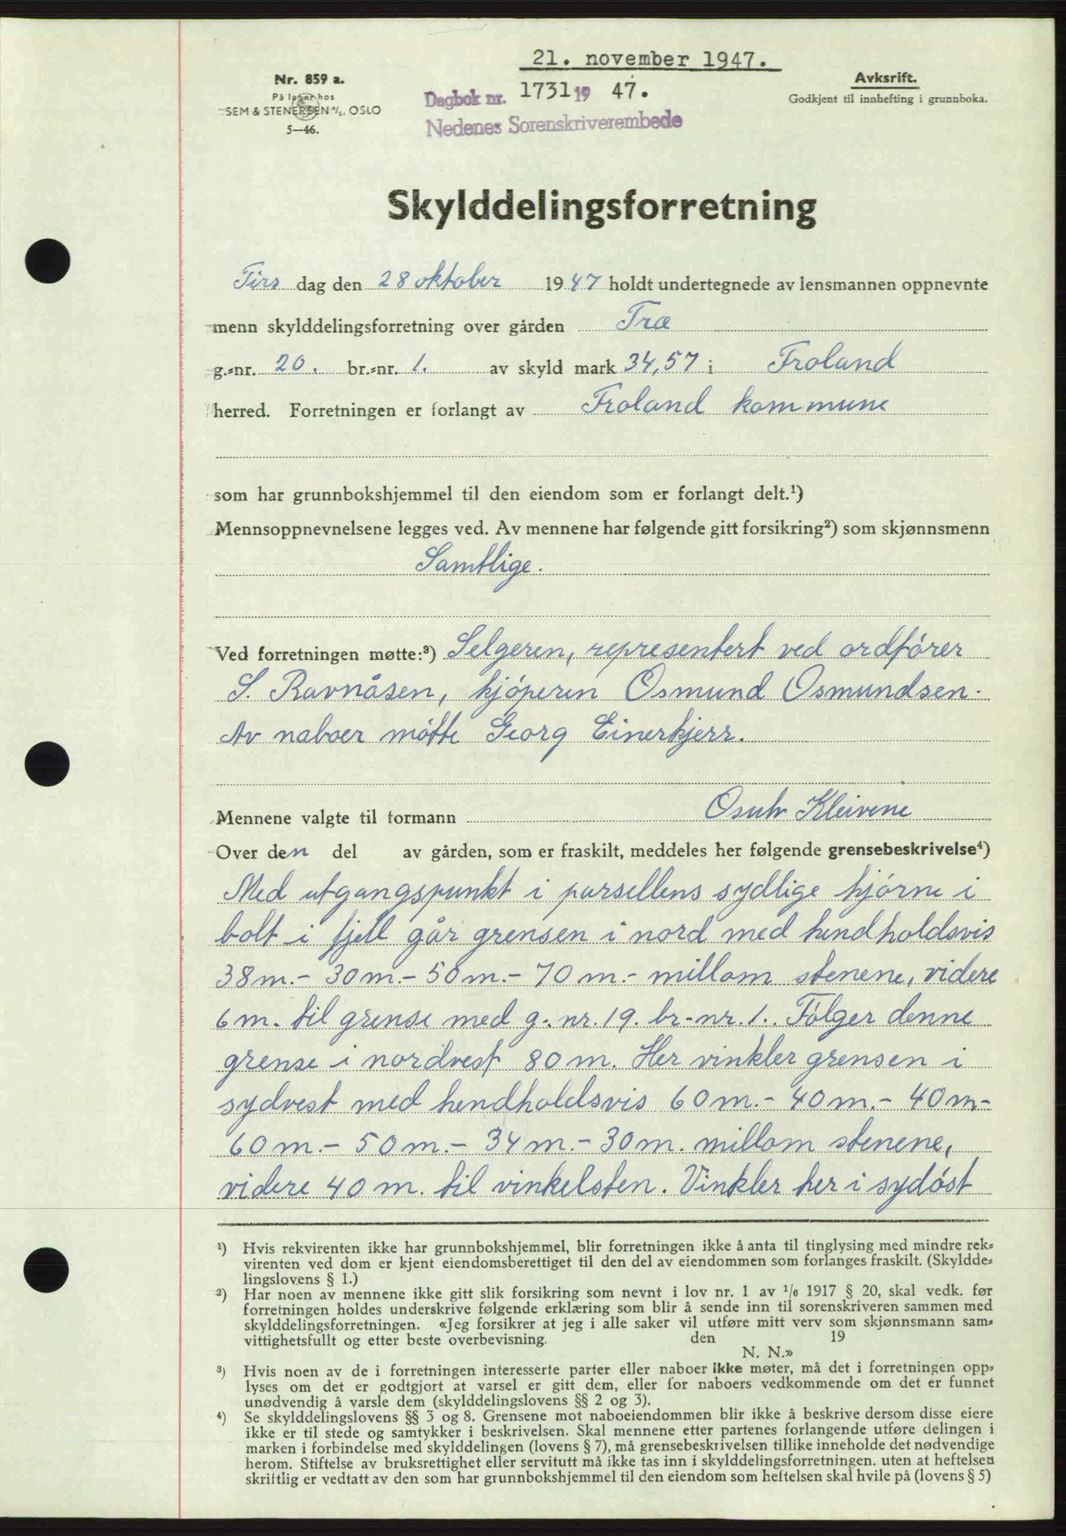 21. november 1947.
Nr. 859 a.
På lager hos
SEM & STENERSEN A/S, OSLO
5—46.
Dagbok nr. 1731 19 47.
Nedenes Sorenskriverembede
Avskrift.
Godkjent til innhefting i grunnboka.
Skylddelingsforretning
Tirs dag den 28 oktober 1947 holdt undertegnede av lensmannen oppnevnte
menn skylddelingsforretning over gården Træ
g.-nr. 20. br.-nr. 1. av skyld mark 34,57 i Froland
herred. Forretningen er forlangt av Froland kommune
som har grunnbokshjemmel til den eiendom som er forlangt delt.¹)
Mennsoppnevnelsene legges ved. Av mennene har følgende gitt forsikring²) som skjønnsmenn
Samtlige.
Ved forretningen møtte:³) Selgeren, representert ved ordfører
S. Ravnåsen, kjøperen Osmund Osmundsen.
Av naboer møtte Georg Einerkjerr.
Mennene valgte til formann Osuh Kleivene
Over den del av gården, som er fraskilt, meddeles her følgende grensebeskrivelse⁴)
Med utgangspunkt i parsellens sydlige hjørne i
bolt i fjell går grensen i nord med hendholdsvis
38 m.- 30 m.- 50 m.- 70 m.- millom stenene, videre
6 m. til grense med g.nr. 19. br-nr. 1. Følger denne
grense i nordvest 80 m. Her vinkler grensen i
sydvest med hendholdsvis 60 m.- 40 m.- 40 m-
60 m.- 50 m.- 34 m.- 30 m. millom stenene,
videre 40 m. til vinkelsten. Vinkler her i sydøst
¹) Hvis rekvirenten ikke har grunnbokshjemmel, blir forretningen ikke å anta til tinglysing med mindre rek-
virenten ved dom er kjent eiendomsberettiget til den del av eiendommen som forlanges fraskilt. (Skyldde-
lingslovens § 1.)
²) Har noen av mennene ikke gitt slik forsikring som nevnt i lov nr. 1 av 1/6 1917 § 20, skal vedk. før
forretningen holdes underskrive følgende erklæring som blir å sende inn til sorenskriveren sammen med
skylddelingsforretningen. «Jeg forsikrer at jeg i alle saker vil utføre mitt verv som skjønnsmann sam-
vittighetsfullt og etter beste overbevisning. den 19
N. N.»
³) Hvis noen av de i forretningen interesserte parter eller naboer ikke møter, må det i forretningen opp-
lyses om det er godtgjort at varsel er gitt dem, eller for naboers vedkommende om det er funnet
unødvendig å varsle dem (skylddelingslovens §§ 2 og 3).
⁴) Se skylddelingslovens §§ 3 og 8. Grensene mot naboeiendommen blir ikke å beskrive dersom disse eiere
ikke er til stede og samtykker i beskrivelsen. Skal mennene etter partenes forlangende utføre delingen i
marken i forbindelse med skylddelingen (lovens § 7), må grensebeskrivelsen tillike inneholde det nødvendige
herom. Stiftelse av bruksrettighet eller servitutt må ikke tas inn i skylddelingsforretningen. uten at heftelsen
skriftlig er vedtatt av den som har grunnbokshjemmel til den eiendom som heftelsen skal hvile på (lovens § 5)